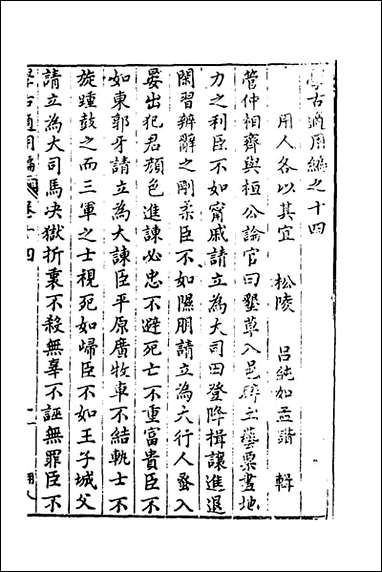 學古適用編之十四
用人各以其宜　松陵　呂純如孟諧　輯
管仲相齊與桓公論官曰墾草入邑辟土藝粟盡地
力之利臣不如甯戚請立為大司田登降揖讓進退
閑習辨辭之剛柔臣不如隰朋請立為大行人蚤入
晏出犯君顏色進諫必忠不避死亡不重富貴臣不
如東郭牙請立為大諫臣平原廣牧車不結軌士不
旋踵鼓之而三軍之士視死如歸臣不如王子城父
請立為大司馬决獄折衷不殺無辜不誣無罪臣不
學古適用編　卷十四　用人